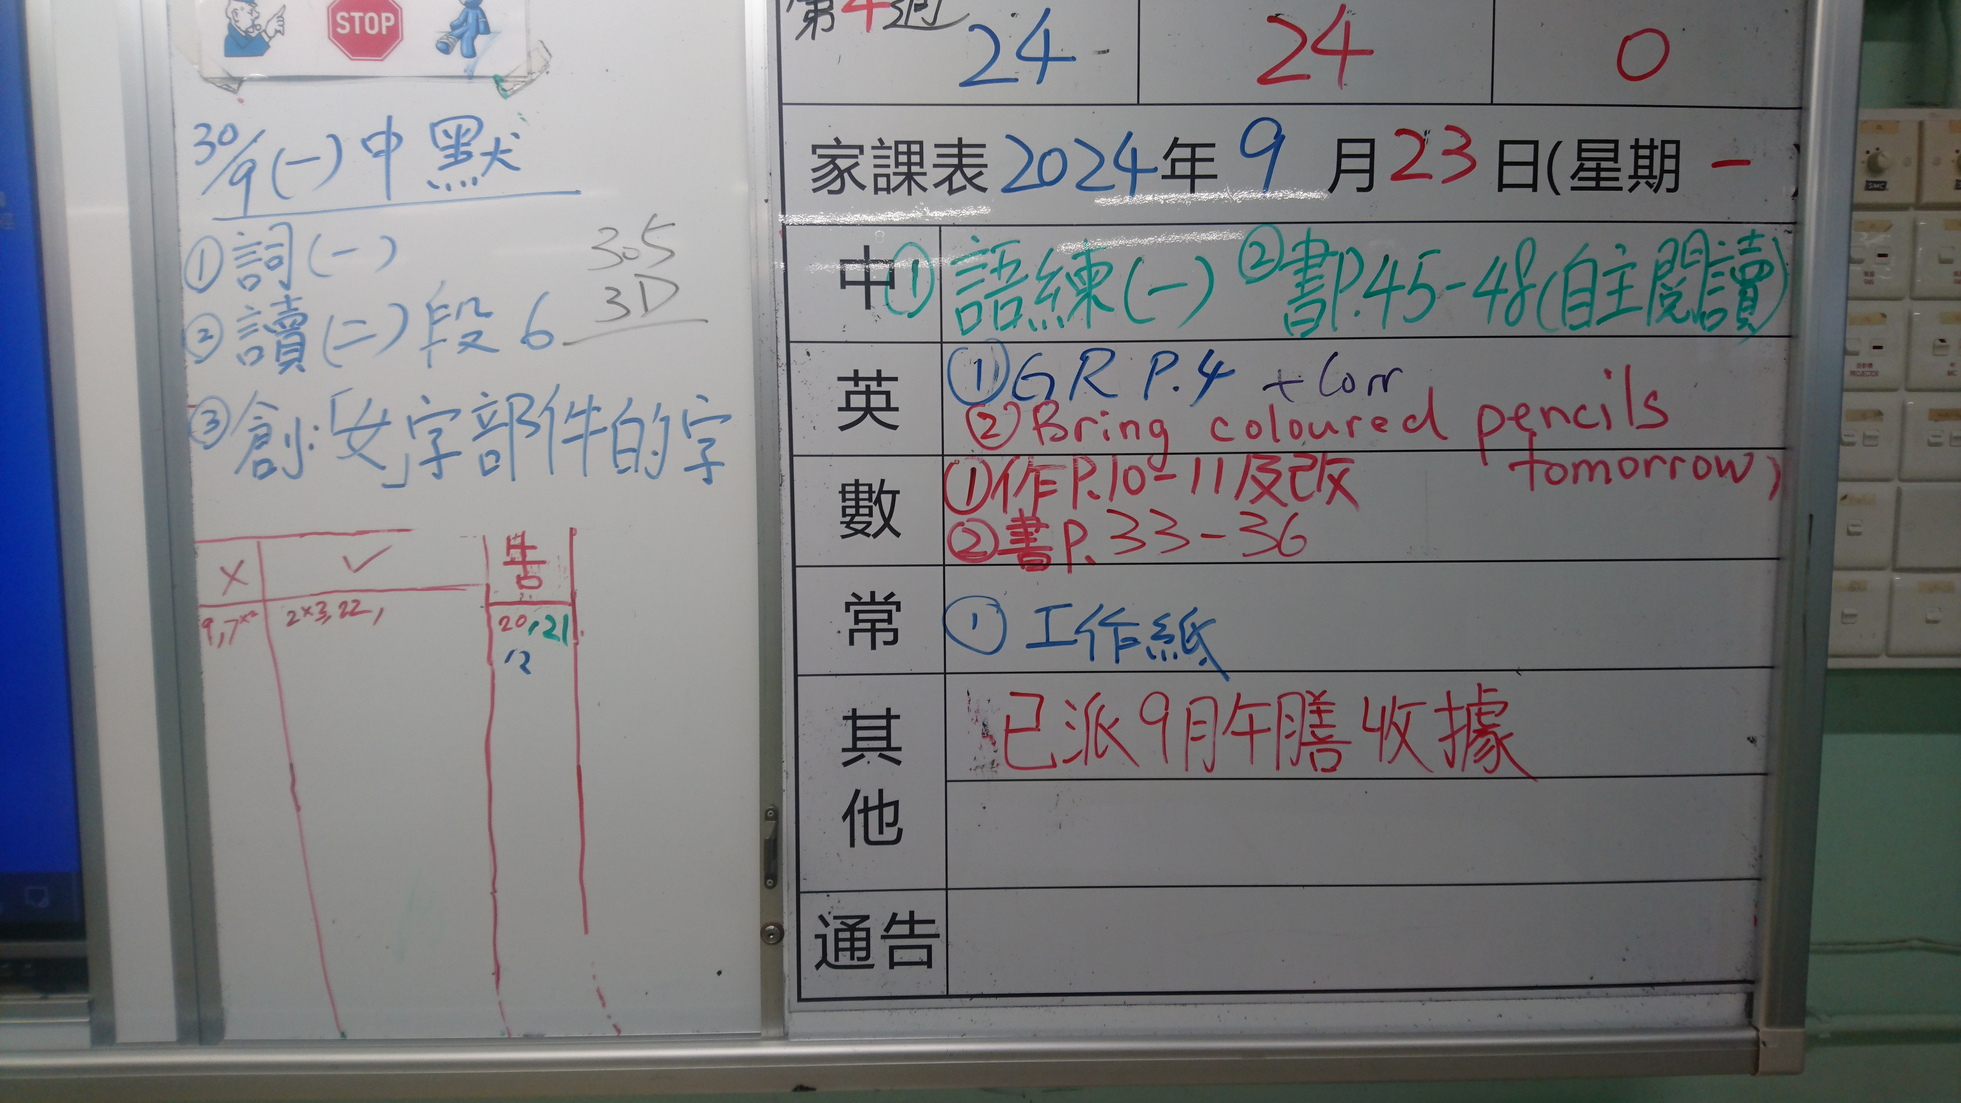 STOP
30/9(一)中默
①詞(一)
②讀(二)段6
③創:「女」字部件的字
305
3D
X ✓
9,7ˣ² 2ˣ3,22, 20,21
12
第4週
24 24 0
家課表2024年9月23日(星期一)
中 ①語練(一) ②書P.45-48(自主閱讀)
英 ①GR P.4 + Corr
②Bring coloured pencils
tomorrow)
數 ①作P.10-11及改
②書P.33-36
常 ①工作紙
其他 已派9月午膳收據
通告